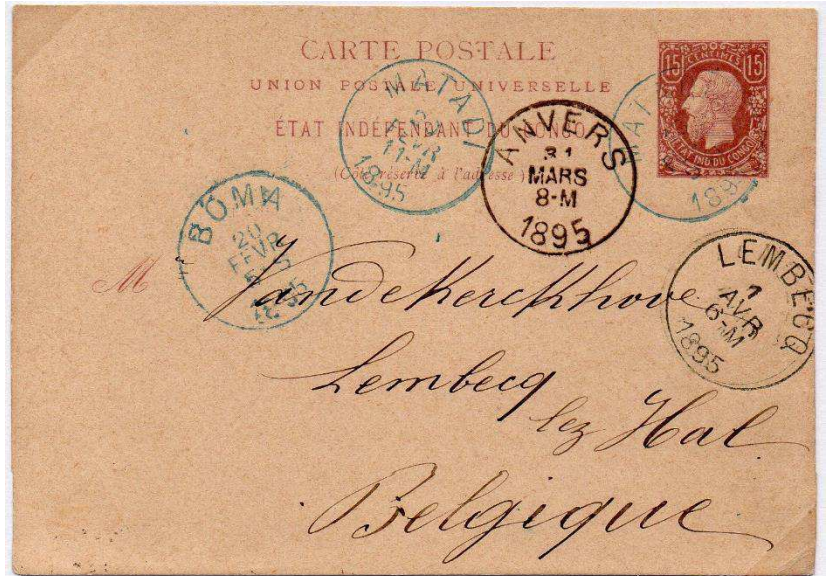 CARTE POSTALE
UNION POSTALE UNIVERSELLE
ÉTAT INDÉPENDANT DU CONGO
(Côté réservé à l'adresse)
15 CENTIMES 15
ÉTAT IND. DU CONGO
MATADI
FEVR
11-M
1895
ANVERS
31
MARS
8-M
1895
MATADI
189
BOMA
20
FEVR
LEMBECQ
1
AVR
6-M
1895
M
Vandekerckhove
Lembecq
lez Hal
Belgique